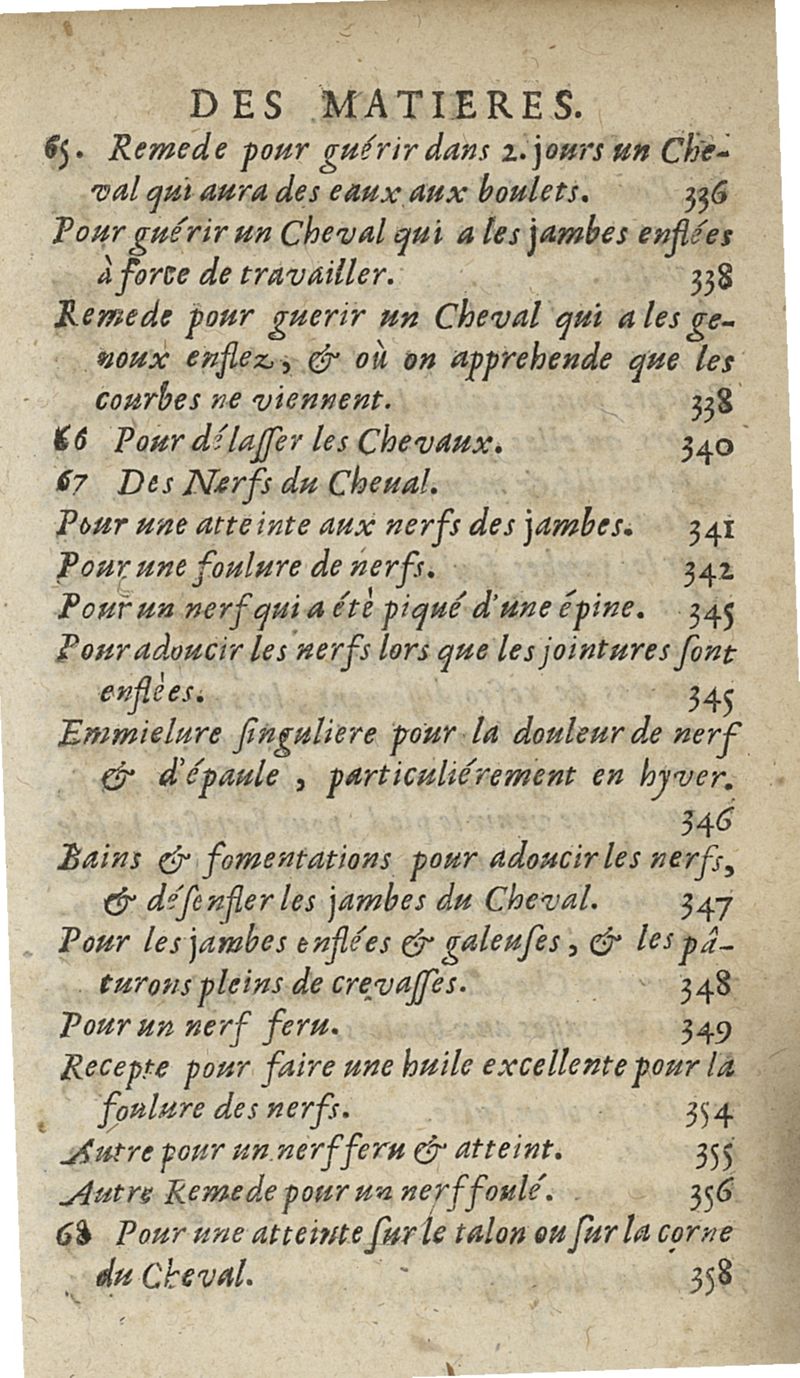 DES MATIERES.
65. Remede pour guérir dans 2. jours un Che-
val qui aura des eaux aux boulets. 336
Pour guérir un Cheval qui a les jambes enflées
à force de travailler. 338
Remede pour guerir un Cheval qui a les ge-
noux enflez, & où on apprehende que les
courbes ne viennent. 338
66 Pour délaſſer les Chevaux. 340
67 Des Nerfs du Cheual.
Pour une atteinte aux nerfs des jambes. 341
Pour une foulure de nerfs. 342
Pour un nerf qui a étè piqué d'une épine. 345
Pour adoucir les nerfs lors que les jointures ſont
enflèes. 345
Emmielure ſinguliere pour la douleur de nerf
& d'épaule, particuliérement en hyver.
346
Bains & fomentations pour adoucir les nerfs,
& déſenfler les jambes du Cheval. 347
Pour les jambes enflées & galeuſes, & les pâ-
turons pleins de crevaſſes. 348
Pour un nerf feru. 349
Recepte pour faire une huile excellente pour la
foulure des nerfs. 354
Autre pour un nerf feru & atteint. 355
Autre Remede pour un nerf foulé. 356
68 Pour une atteinte ſur le talon ou ſur la corne
du Cheval. 358